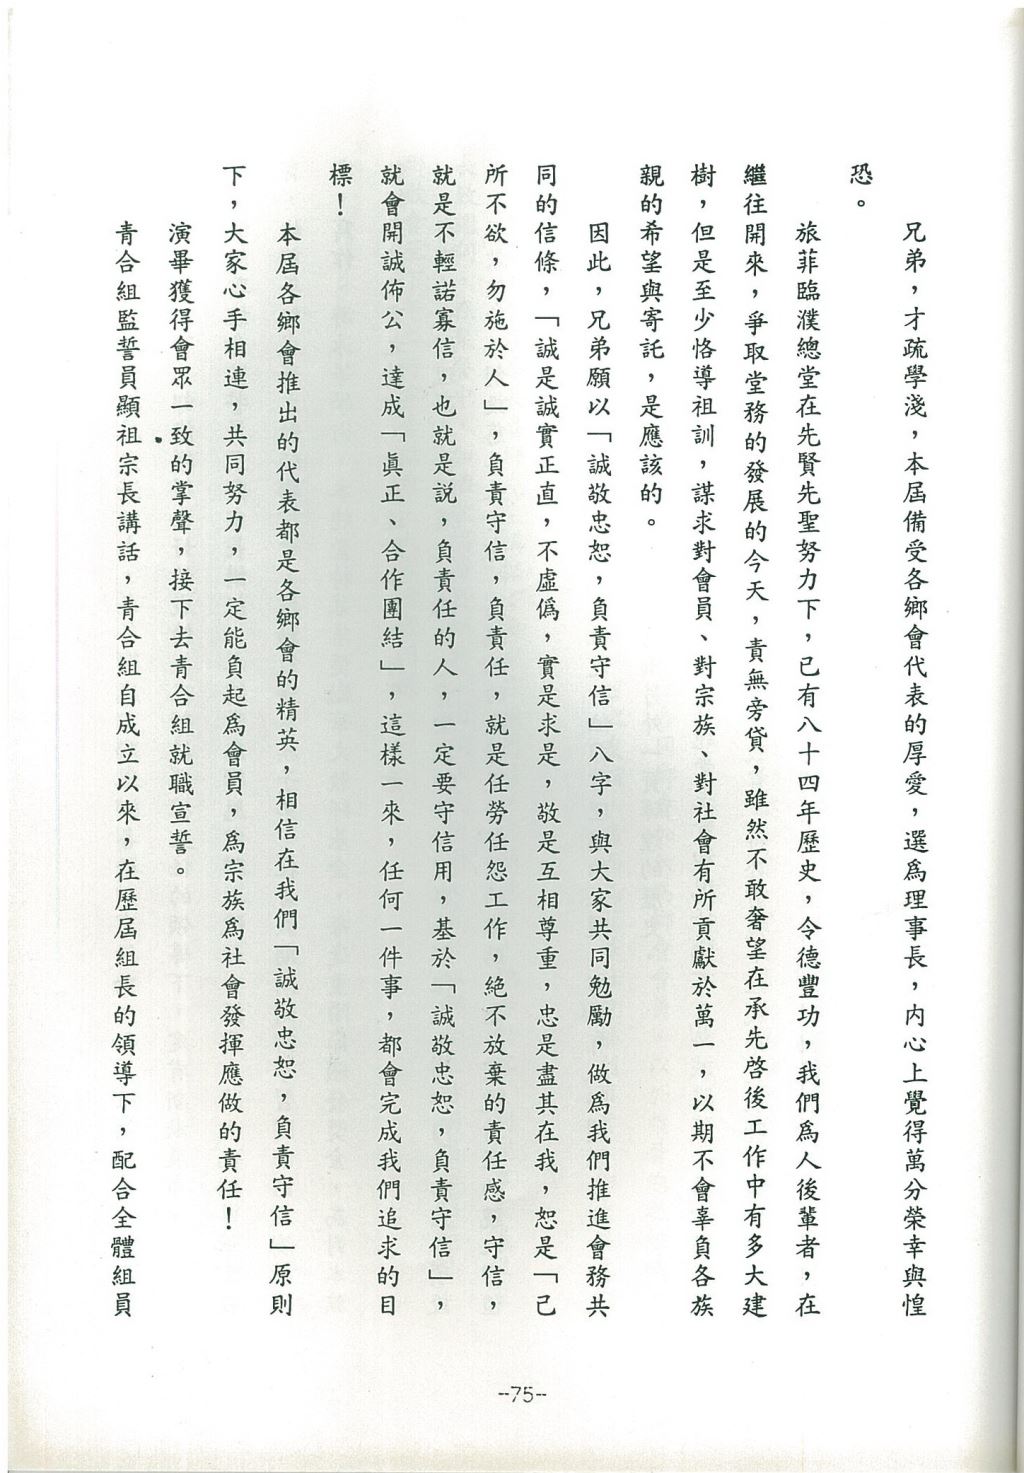 兄弟，才疏學淺，本屆備受各鄉會代表的厚愛，選爲理事長，內心上覺得萬分榮幸與惶
恐。
旅菲臨濮總堂在先賢先聖努力下，已有八十四年歷史，令德豐功，我們爲人後輩者，在
繼往開來，爭取堂務的發展的今天，責無旁貸，雖然不敢奢望在承先啓後工作中有多大建
樹，但是至少恪導祖訓，謀求對會員、對宗族、對社會有所貢獻於萬一，以期不會辜負各族
親的希望與寄託，是應該的。
因此，兄弟願以「誠敬忠恕，負責守信」八字，與大家共同勉勵，做爲我們推進會務共
同的信條，「誠是誠實正直，不虛僞，實是求是，敬是互相尊重，忠是盡其在我，恕是「己
所不欲，勿施於人」，負責守信，負責任，就是任勞任怨工作，絕不放棄的責任感，守信，
就是不輕諾寡信，也就是説，負責任的人，一定要守信用，基於「誠敬忠恕，負責守信」，
就會開誠佈公，達成「眞正、合作團結」，這樣一來，任何一件事，都會完成我們追求的目
標！
本屆各鄉會推出的代表都是各鄉會的精英，相信在我們「誠敬忠恕，負責守信」原則
下，大家心手相連，共同努力，一定能負起爲會員，爲宗族爲社會發揮應做的責任！
演畢獲得會眾一致的掌聲，接下去青合組就職宣誓。
青合組監誓員顯祖宗長講話，青合組自成立以來，在歷屆組長的領導下，配合全體組員
--75--